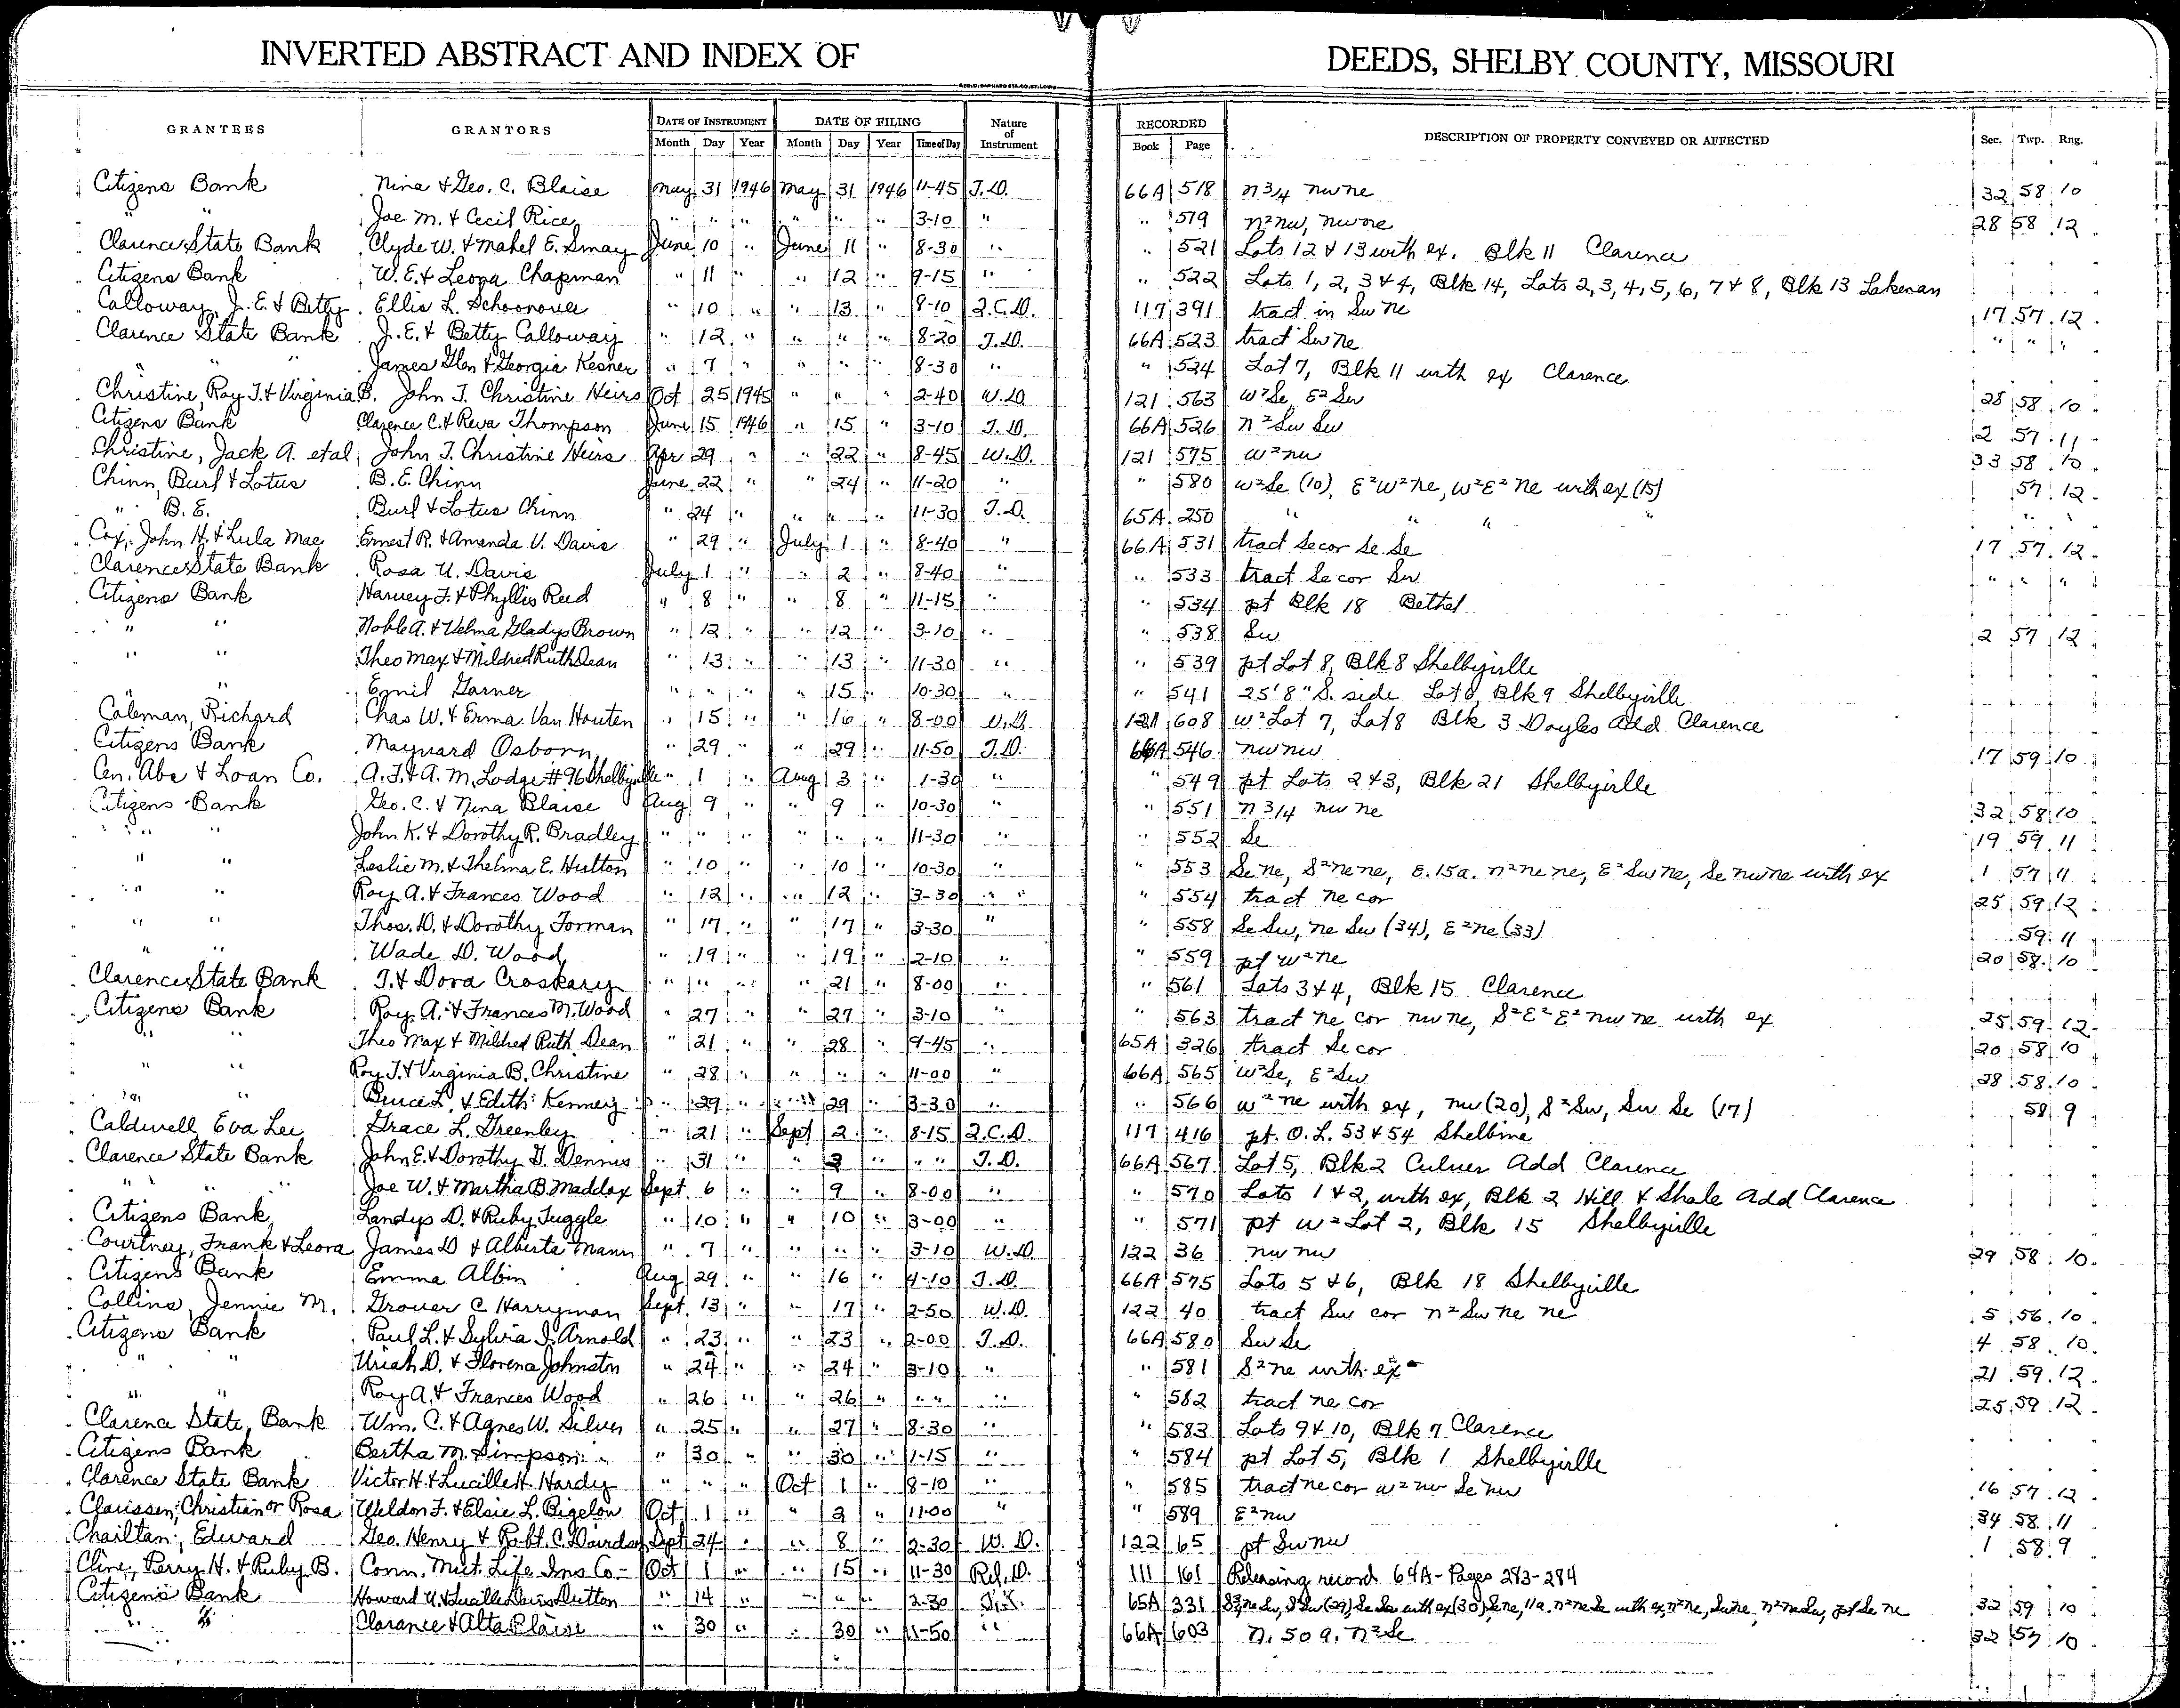 INVERTED ABSTRACT AND INDEX OF DEEDS, SHELBY COUNTY, MISSOURI
GRANTEES GRANTORS DATE OF INSTRUMENT DATE OF FILING Nature of Instrument RECORDED DESCRIPTION OF PROPERTY CONVEYED OR AFFECTED Sec. Twp. Rng.
Month Day Year Month Day Year Time of Day Book Page
Citizens Bank Nina & Geo. C. Blaise May 31 1946 May 31 1946 11-45 T.D. 66A 518 N 3/4 nw ne 32 58 10
" " Joe M. & Cecil Rice " " " " " " 3-10 " " 519 N²nw, nw ne 28 58 12
Clarence State Bank Clyde W. & Mabel E. Smay June 10 " June 11 " 8-30 " " 521 Lots 12 & 13 with ex. Blk 11 Clarence
Citizens Bank W. E. & Leona Chapman " 11 " " 12 " 9-15 " " 522 Lots 1, 2, 3 & 4, Blk 14, Lots 2, 3, 4, 5, 6, 7 & 8, Blk 13 Lakenan
Calloway, J. E. & Betty Ellis L. Schoonover " 10 " " 13 " 8-10 Q.C.D. 117 391 tract in Sw ne 17 57 12
Clarence State Bank J. E. & Betty Calloway " 12 " " " " 8-20 T.D. 66A 523 tract Sw ne " " "
" " " James Glen & Georgia Kesner " 7 " " " " 8-30 " " 524 Lot 7, Blk 11 with ex Clarence
Christine, Roy T. & Virginia B. John T. Christine Heirs Oct 25 1945 " " " 2-40 W.D. 121 563 W²Se, E²Sw 28 58 10
Citizens Bank Clarence C. & Reva Thompson June 15 1946 " 15 " 3-10 T.D. 66A 526 N²Sw Sw 2 57 11
Christine, Jack A. et al John T. Christine Heirs Apr 29 " " 22 " 8-45 W.D. 121 575 W²nw 33 58 10
Chinn, Burl & Lotus B. E. Chinn June 22 " " 24 " 11-20 " " 580 W²Se (10), E²W²ne, W²E²ne with ex (15) 57 12
" B. E. Burl & Lotus Chinn " 24 " " " " 11-30 T.D. 65A 250 " " " " " "
Cox, John H. & Lula Mae Ernest R. & Amanda V. Davis " 29 " July 1 " 8-40 " 66A 531 tract Se cor Se Se 17 57 12
Clarence State Bank Rosa U. Davis July 1 " " 2 " 8-40 " " 533 tract Se cor Sw " " "
Citizens Bank Harvey F. & Phyllis Reed " 8 " " 8 " 11-15 " " 534 pt Blk 18 Bethel
" " Noble A. & Velma Gladys Brown " 12 " " 12 " 3-10 " " 538 Sw 2 57 12
" " Theo Max & Mildred Ruth Dean " 13 " " 13 " 11-30 " " 539 pt Lot 8, Blk 8 Shelbyville
" Emil Garner " " " " 15 " 10-30 " " 541 25'8" S. side Lot 8, Blk 9 Shelbyville
Coleman, Richard Chas W. & Erma Van Houten " 15 " " 16 " 8-00 W.D. 121 608 W²Lot 7, Lot 8 Blk 3 Doyles Add Clarence
Citizens Bank Maynard Osborn " 29 " " 29 " 11-50 T.D. 66A 546 nw nw 17 59 10
Cen. Abs & Loan Co. A.F. & A.M. Lodge #96 Shelbyville " 1 " Aug 3 " 1-30 " " 549 pt Lots 2 & 3, Blk 21 Shelbyville
Citizens Bank Geo. C. & Nina Blaise Aug 9 " " 9 " 10-30 " " 551 N 3/4 nw ne 32 58 10
" " John K. & Dorothy R. Bradley " " " " " " 11-30 " " 552 Se 19 59 11
" " Leslie M. & Thelma E. Hutton " 10 " " 10 " 10-30 " " 553 Se ne, S²ne ne, E. 15a. N²ne ne, E²Sw ne, Se nw ne with ex 1 57 11
" " Roy A. & Frances Wood " 12 " " 12 " 3-30 " " 554 tract ne cor 25 59 12
" " Thos. D. & Dorothy Forman " 17 " " 17 " 3-30 " " 558 Se Sw, ne Sw (34), E²ne (33) 59 11
" " Wade D. Wood " 19 " " 19 " 2-10 " " 559 pt W²ne 20 58 10
Clarence State Bank T. & Dora Croskary " " " " 21 " 8-00 " " 561 Lots 3 & 4, Blk 15 Clarence
Citizens Bank Roy A. & Frances M. Wood " 27 " " 27 " 3-10 " " 563 tract ne cor nw ne, S²E²E²nw ne with ex 25 59 12
" " Theo Max & Mildred Ruth Dean " 21 " " 28 " 9-45 " 65A 326 tract Se cor 20 58 10
" " Roy T. & Virginia B. Christine " 28 " " " " 11-00 " 66A 565 W²Se, E²Sw 28 58 10
" " Bruce L. & Edith Kenney " 29 " " 29 " 3-30 " " 566 W²ne with ex, nw (20), S²Sw, Sw Se (17) 58 9
Caldwell, Eva Lee Grace L. Greenley " 21 " Sept 2 " 8-15 Q.C.D. 117 416 pt. O.L. 53 & 54 Shelbina
Clarence State Bank John E. & Dorothy G. Dennis " 31 " " 3 " " " T.D. 66A 567 Lot 5, Blk 2 Culver Add Clarence
" " " Joe W. & Martha B. Maddox Sept 6 " " 9 " 8-00 " " 570 Lots 1 & 2, with ex, Blk 2 Hill & Shale Add Clarence
Citizens Bank Landys D. & Ruby Tuggle " 10 " " 10 " 3-00 " " 571 pt W²Lot 2, Blk 15 Shelbyville
Courtney, Frank & Leora James D & Alberta Mann " 7 " " " " 3-10 W.D. 122 36 nw nw 29 58 10
Citizens Bank Emma Albin Aug 29 " " 16 " 4-10 T.D. 66A 575 Lots 5 & 6, Blk 18 Shelbyville
Collins, Jennie M. Grover C. Harryman Sept 13 " " 17 " 2-50 W.D. 122 40 tract Sw cor N²Sw ne ne 5 56 10
Citizens Bank Paul L. & Sylvia I. Arnold " 23 " " 23 " 2-00 T.D. 66A 580 Sw Se 4 58 10
" " Uriah D. & Florena Johnston " 24 " " 24 " 3-10 " " 581 S²ne with ex 21 59 12
" " Roy A. & Frances Wood " 26 " " 26 " " " " " 582 tract ne cor 25 59 12
Clarence State Bank Wm. C. & Agnes W. Silver " 25 " " 27 " 8-30 " " 583 Lots 9 & 10, Blk 7 Clarence
Citizens Bank Bertha M. Simpson " 30 " " 30 " 1-15 " " 584 pt Lot 5, Blk 1 Shelbyville
Clarence State Bank Victor H. & Lucille H. Hardy " " " Oct 1 " 8-10 " " 585 tract ne cor W²nw Se nw 16 57 12
Claussen, Christian or Rosa Weldon F. & Elsie L. Bigelow Oct 1 " " 2 " 11-00 " " 589 E²nw 34 58 11
Edward Geo. Henry & Robt. C. Sept 24 " " 8 " 2-30 W.D. 122 65 pt Sw nw 1 58 9
Cline, Perry H. & Ruby B. Conn. Mut. Life Ins Co. Oct 1 " " 15 " 11-30 Rel. D. 111 161 Releasing record 64A - Pages 283-284
Citizens Bank Howard U. & Lucille Davis Dutton " 14 " " " " 2-30 65A 331 32 59 10
" Clarance & Alta Blaise " 30 " " 30 " 11-50 " 66A 603 N. 50 a. N²Se 32 57 10